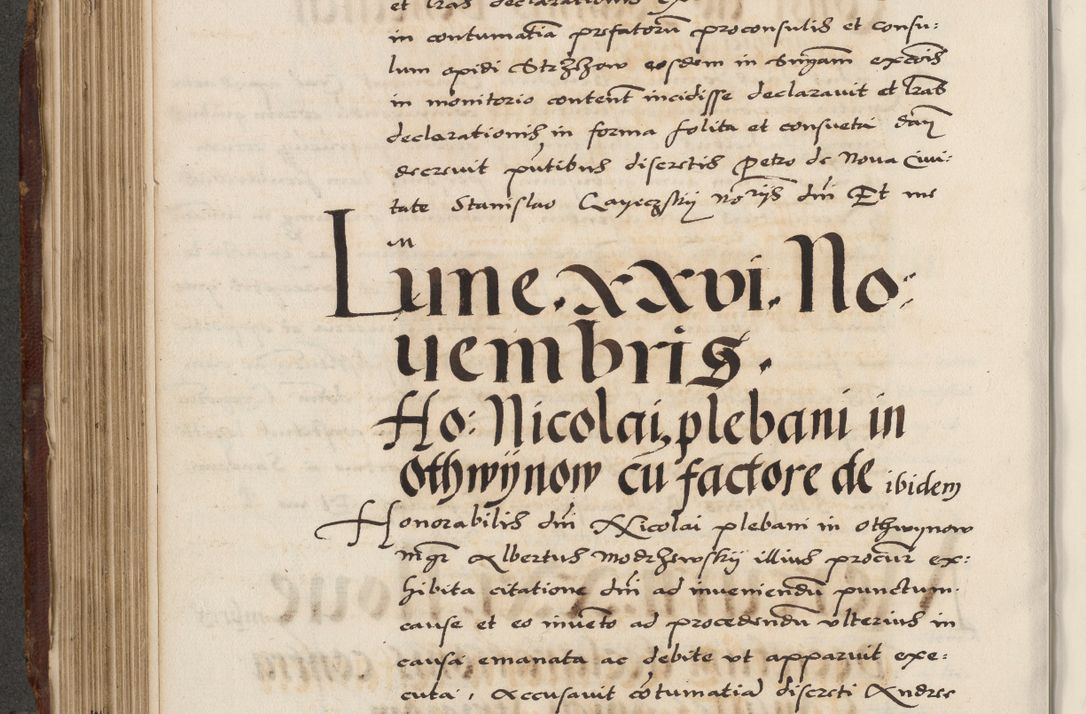 et lras declarationis
in contumatia prefatoru proconsulis et consu:
lum opidi Strzhow eosdem in snyam excois
in monitorio content incidisse declaravit et lras
declarationis in forma solita et consueta dan
decrevit pntibus discretis Petro de Nova Civi:
tate Stanislao Gayeczkij norijs dni Et me
m
Lune. xxvi. No:
uembris.
Ho: Nicolai, plebani in
Othwynow cu factore de ibidem
Honorabilis dni Nicolai plebani in Othwynow
mgr Albertus Modrzewskij illius procur ex:
hibita citatione dni ad inveniendu punctum
cause et eo invento ad procedendu ulterius in
causa emanata ac debite ut apparuit exe:
cuta, Accusavit cotumatia discreti Andree